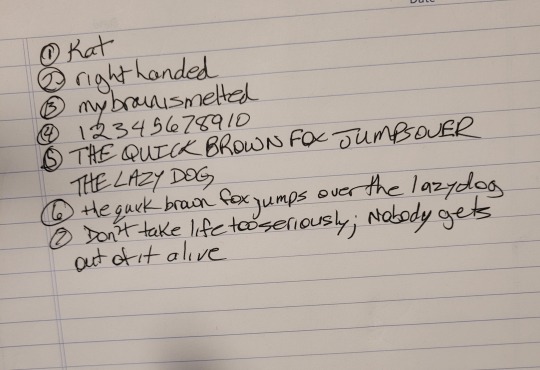 Date
① Kat
② right handed
③ my brain is melted
④ 1 2 3 4 5 6 7 8 9 10
⑤ THE QUICK BROWN FOX JUMPS OVER
THE LAZY DOG
⑥ the quick brown fox jumps over the lazy dog
⑦ Don't take life too seriously; Nobody gets
out of it alive